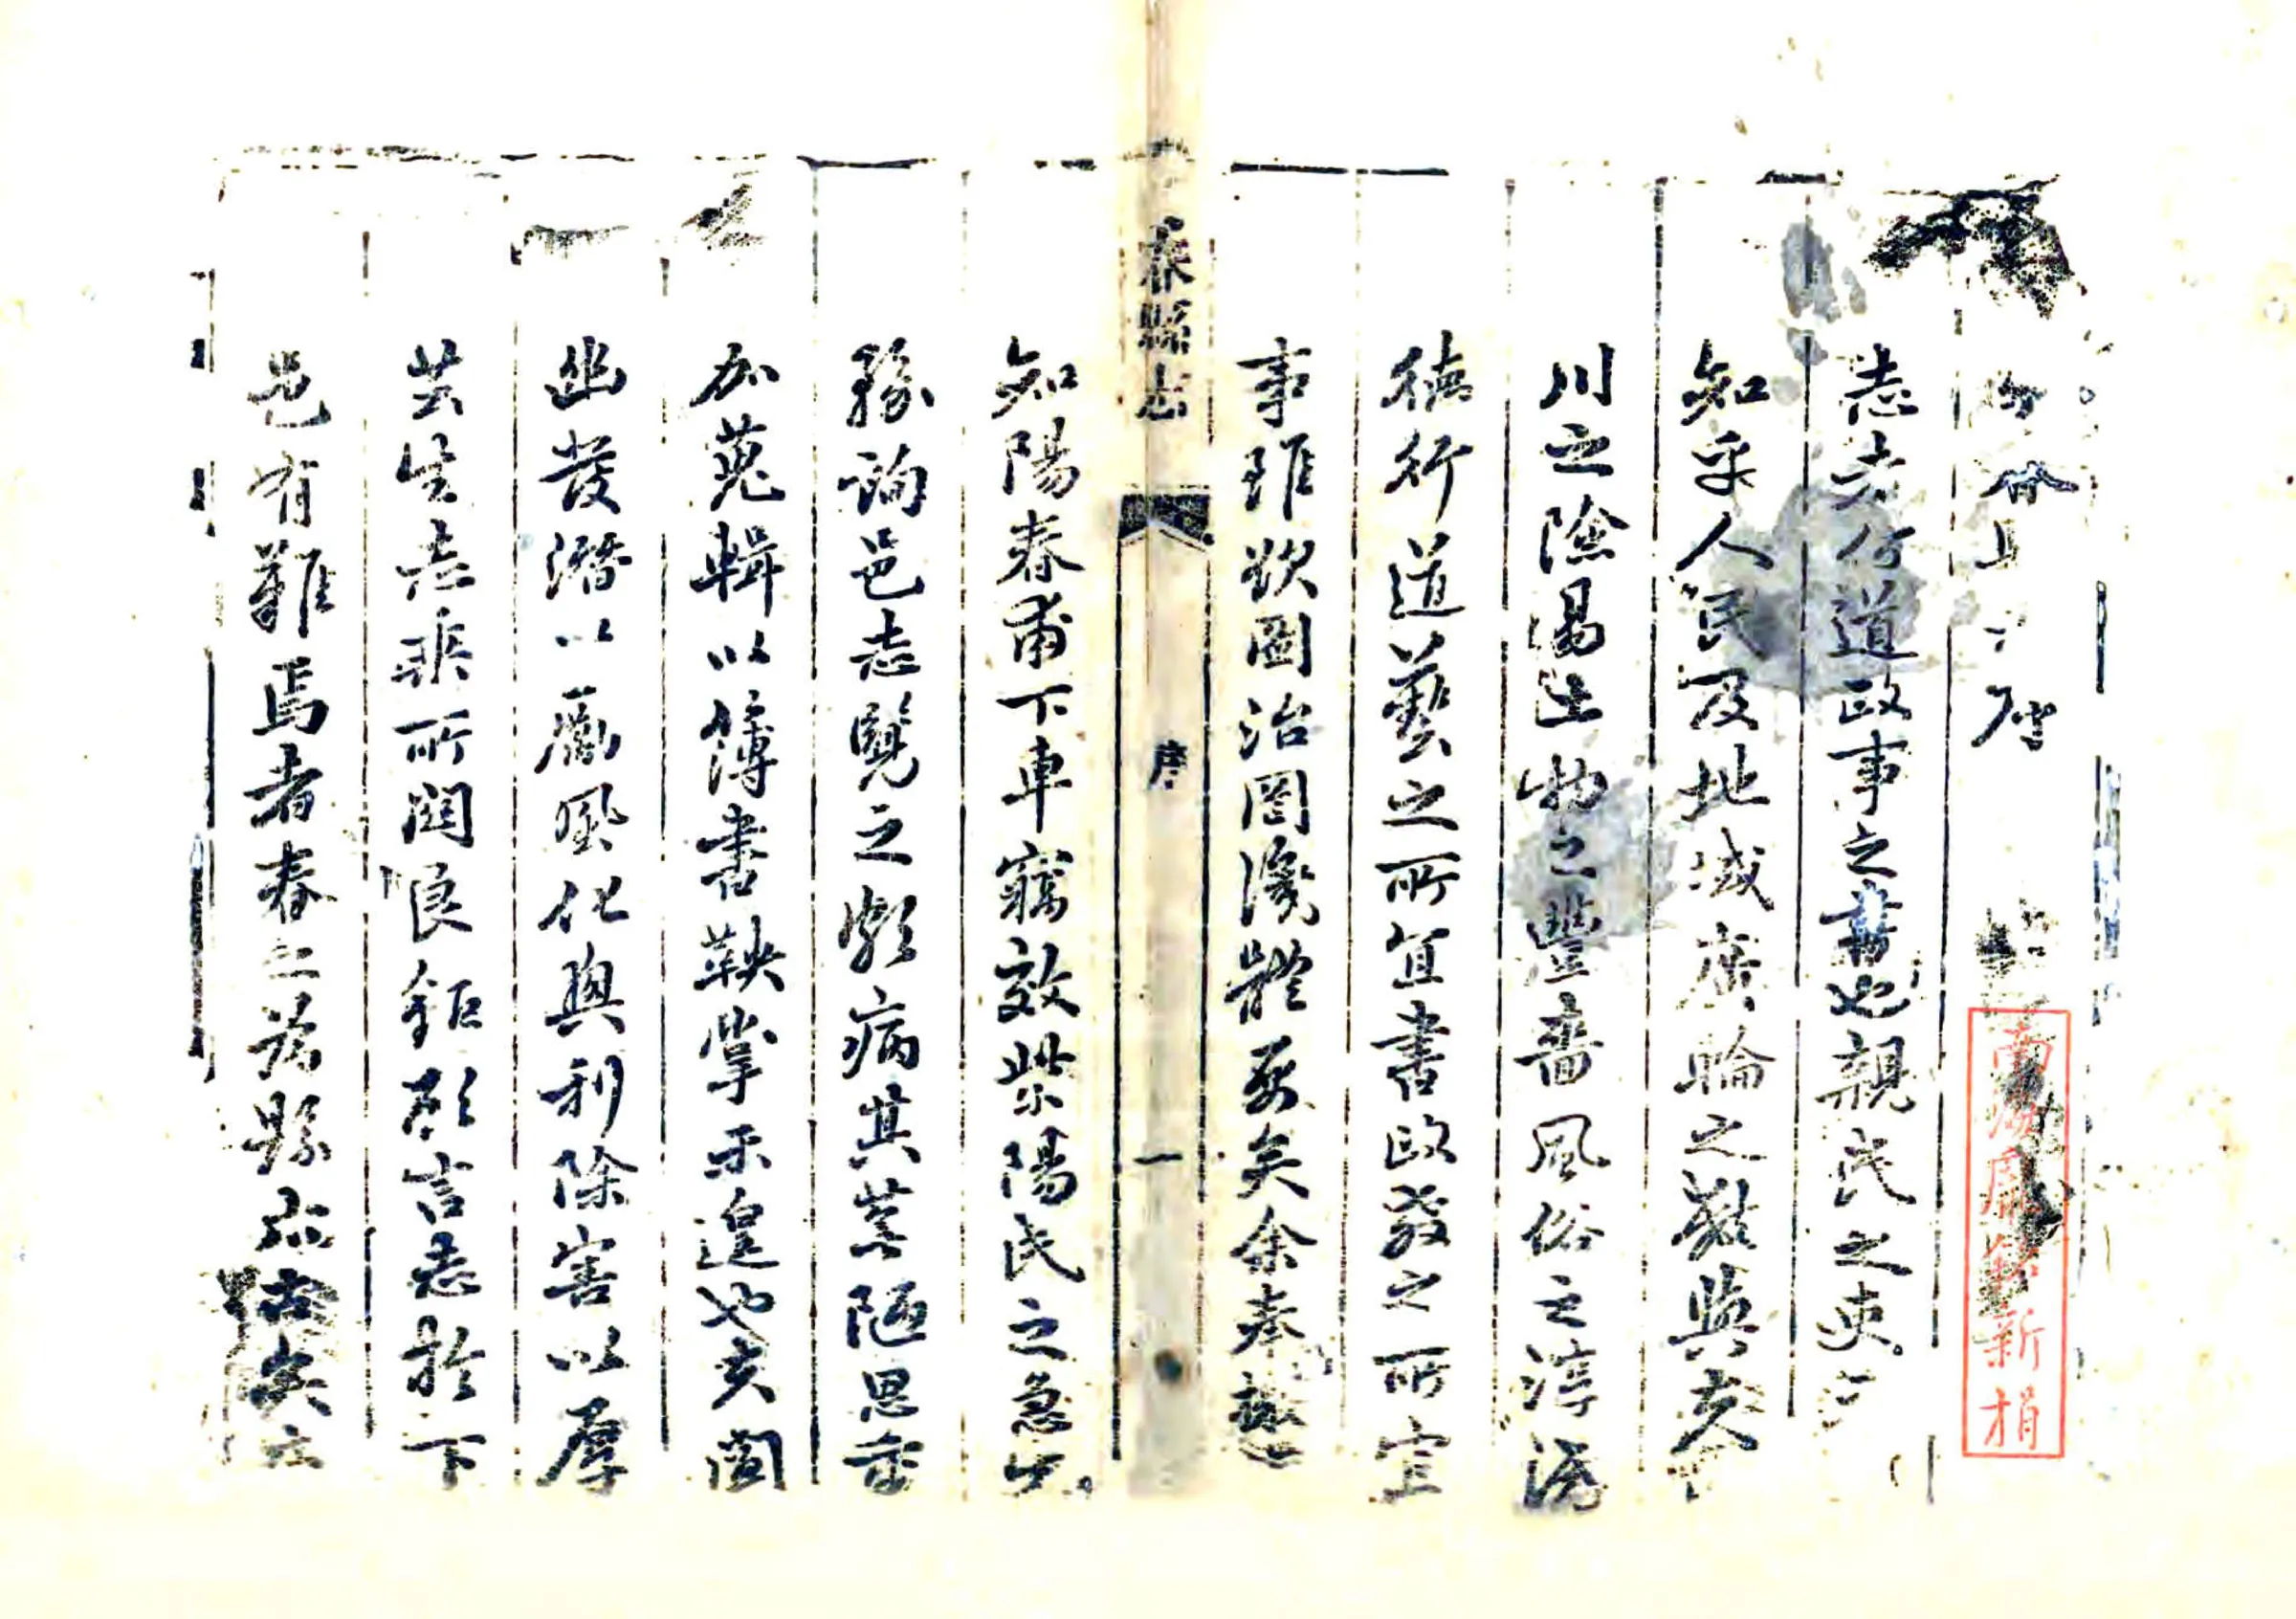 志者何道政事之書也親民之吏
知乎人民及地域廣輪之數與夫
川之險易土物之豐嗇風俗之淳澆
德行道藝之所宜書政教之所宜
事雖欲圖治罔識體要矣余奉
知陽春甫下車竊效紫陽氏之急
務詢邑志覽之頗病其荒陋思重
加蒐輯以簿書鞅掌未遑也夫闡
幽發潛以勵風化興利除害以厚
芸生志乘所關良鉅顧言志於下
邑有難焉者春之為縣
春縣志
序
一
新捐